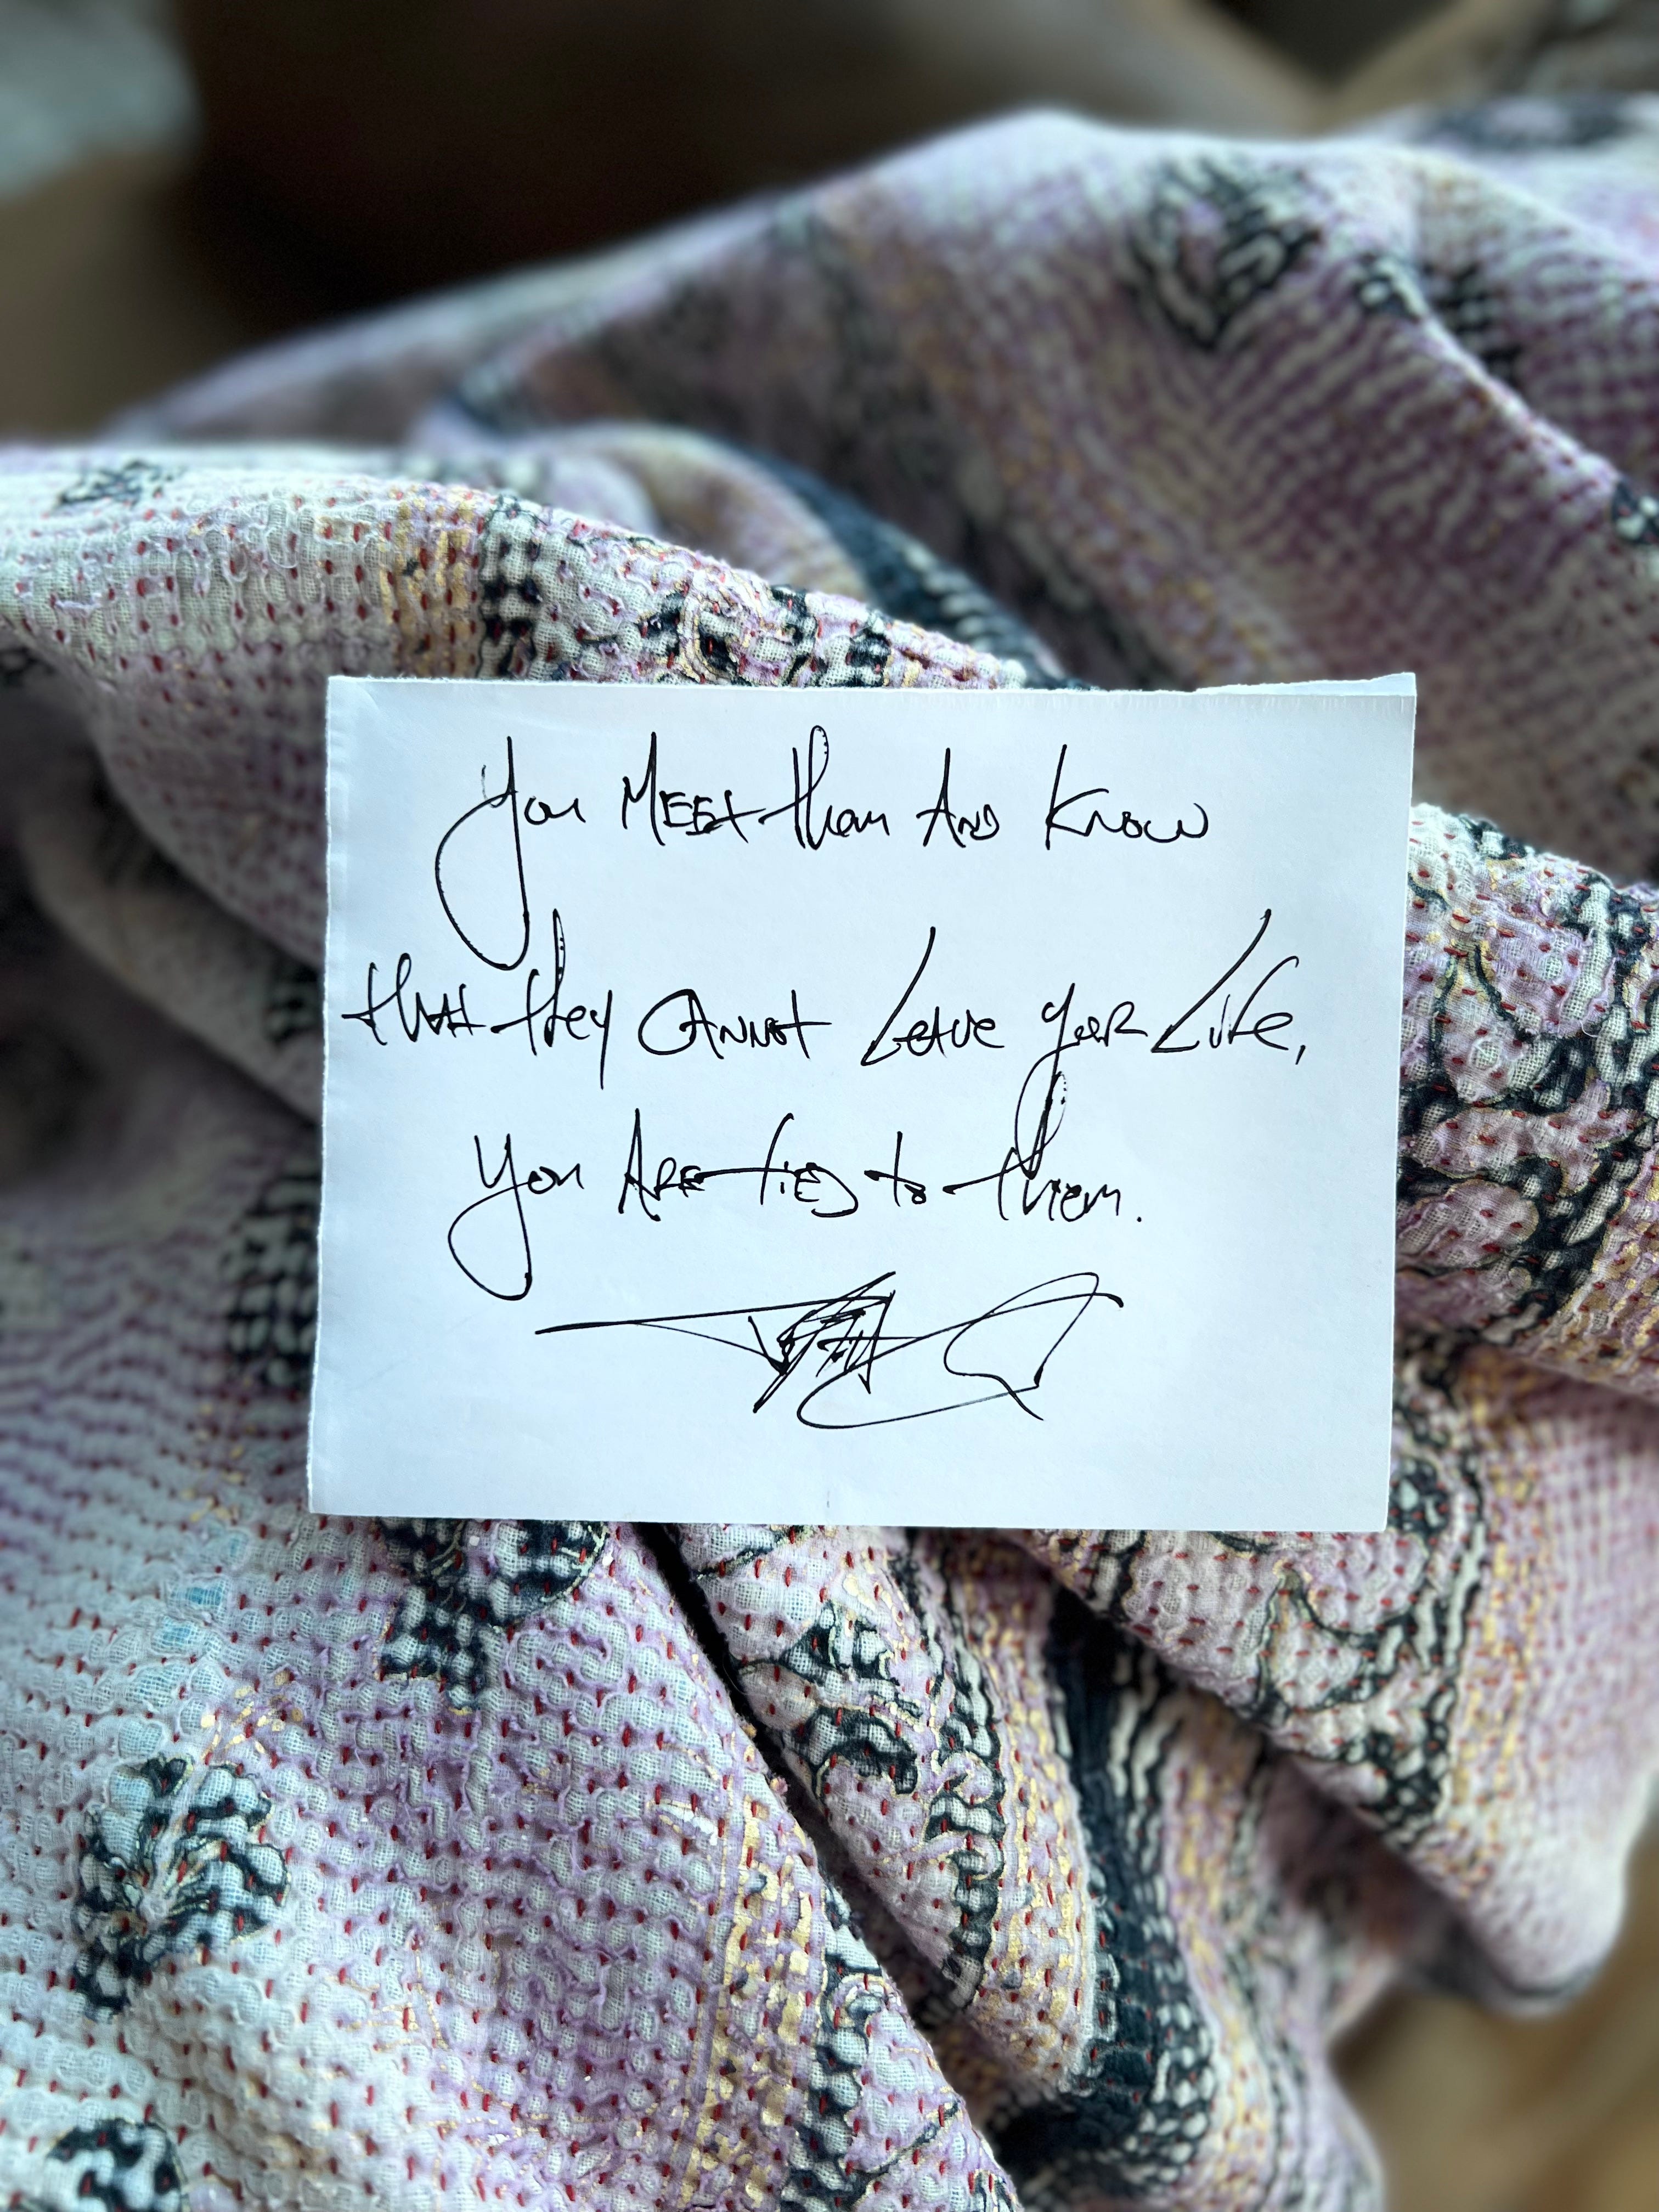 You MEET them AND KNOW
that they CANNOT LEAVE YOUR LIFE,
You ARE tiED to them.